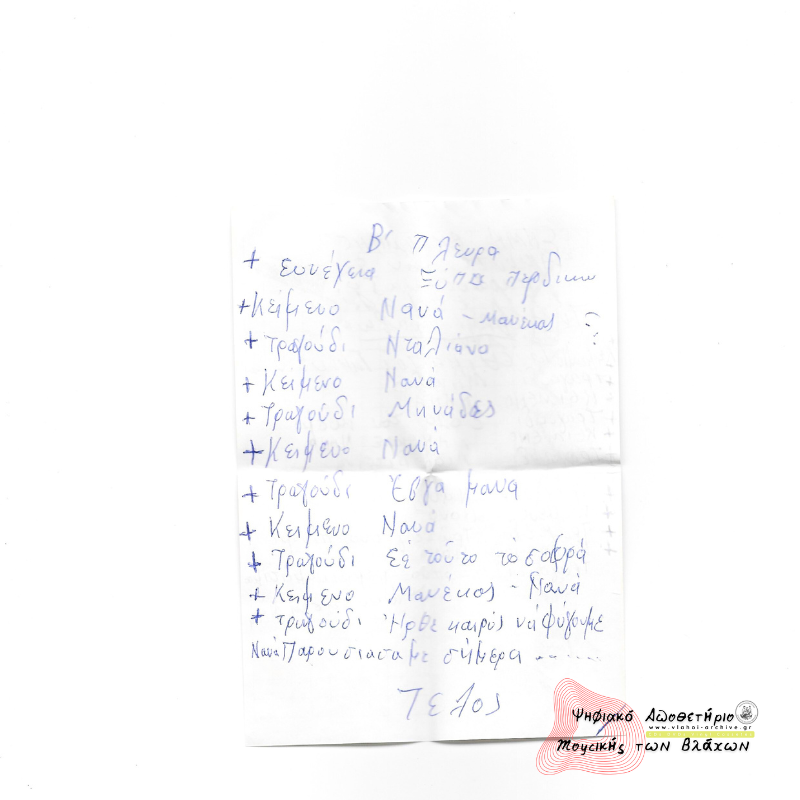 Β' Πλευρα
+ Συνέχεια Ξύπα Περδικα
+ Κείμενο Νανά - Μανέκας
+ Τραγούδι Νταλιάνα
+ Κείμενο Νανά
+ Τραγούδι Μηνάδες
+ Κειμενο Νανά
+ Τραγούδι Έβγα μανα
+ Κειμενο Νανά
+ Τραγούδι Σε τούτο το σοφρά
+ Κειμενο Μανέκας - Νανά
+ τραγούδι Ήρθε καιρός νά φύγουμε
Νανά Παρουσιασαμε σήμερα ........
Τελος
Ψηφιακό Αποθετήριο
www.vlahoi-archive.gr
Μουσικής των Βλάχων